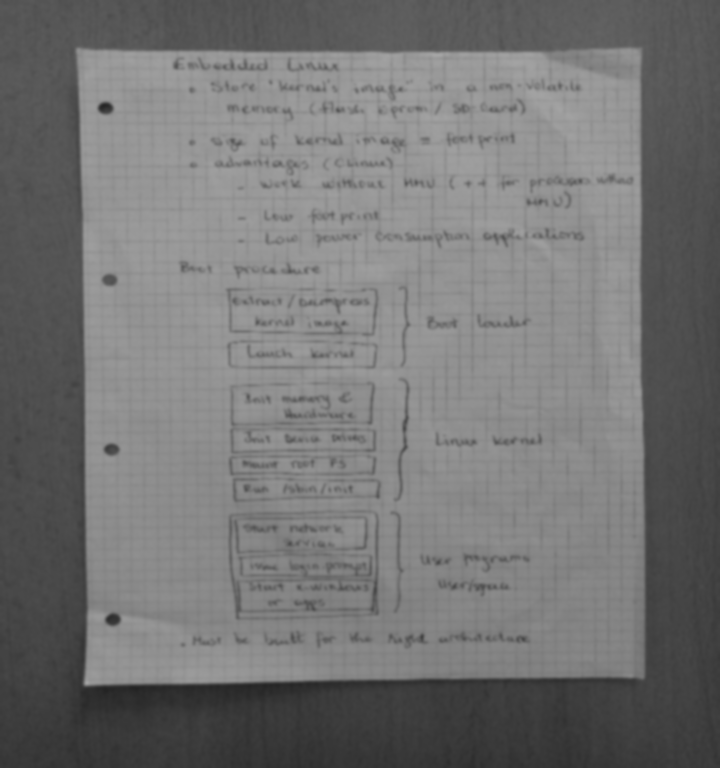 Embedded Linux
• Store "Kernel's image" in a non-volatile
memory (flash Eprom / SD-Card)
• size of kernel image = footprint
• advantages (CLinux)
- work without MMU (++ for processors without
MMU)
- Low footprint
- Low power consumption applications
Boot procedure
Extract / Decompress
kernel image
Boot loader
Launch kernel
Init memory &
Hardware
Init Device Drivers
Linux kernel
Mount root FS
Run /sbin/init
Start network
services
issue login prompt
User programs
Start x-windows
or apps
Userspace
• Must be built for the right architecture